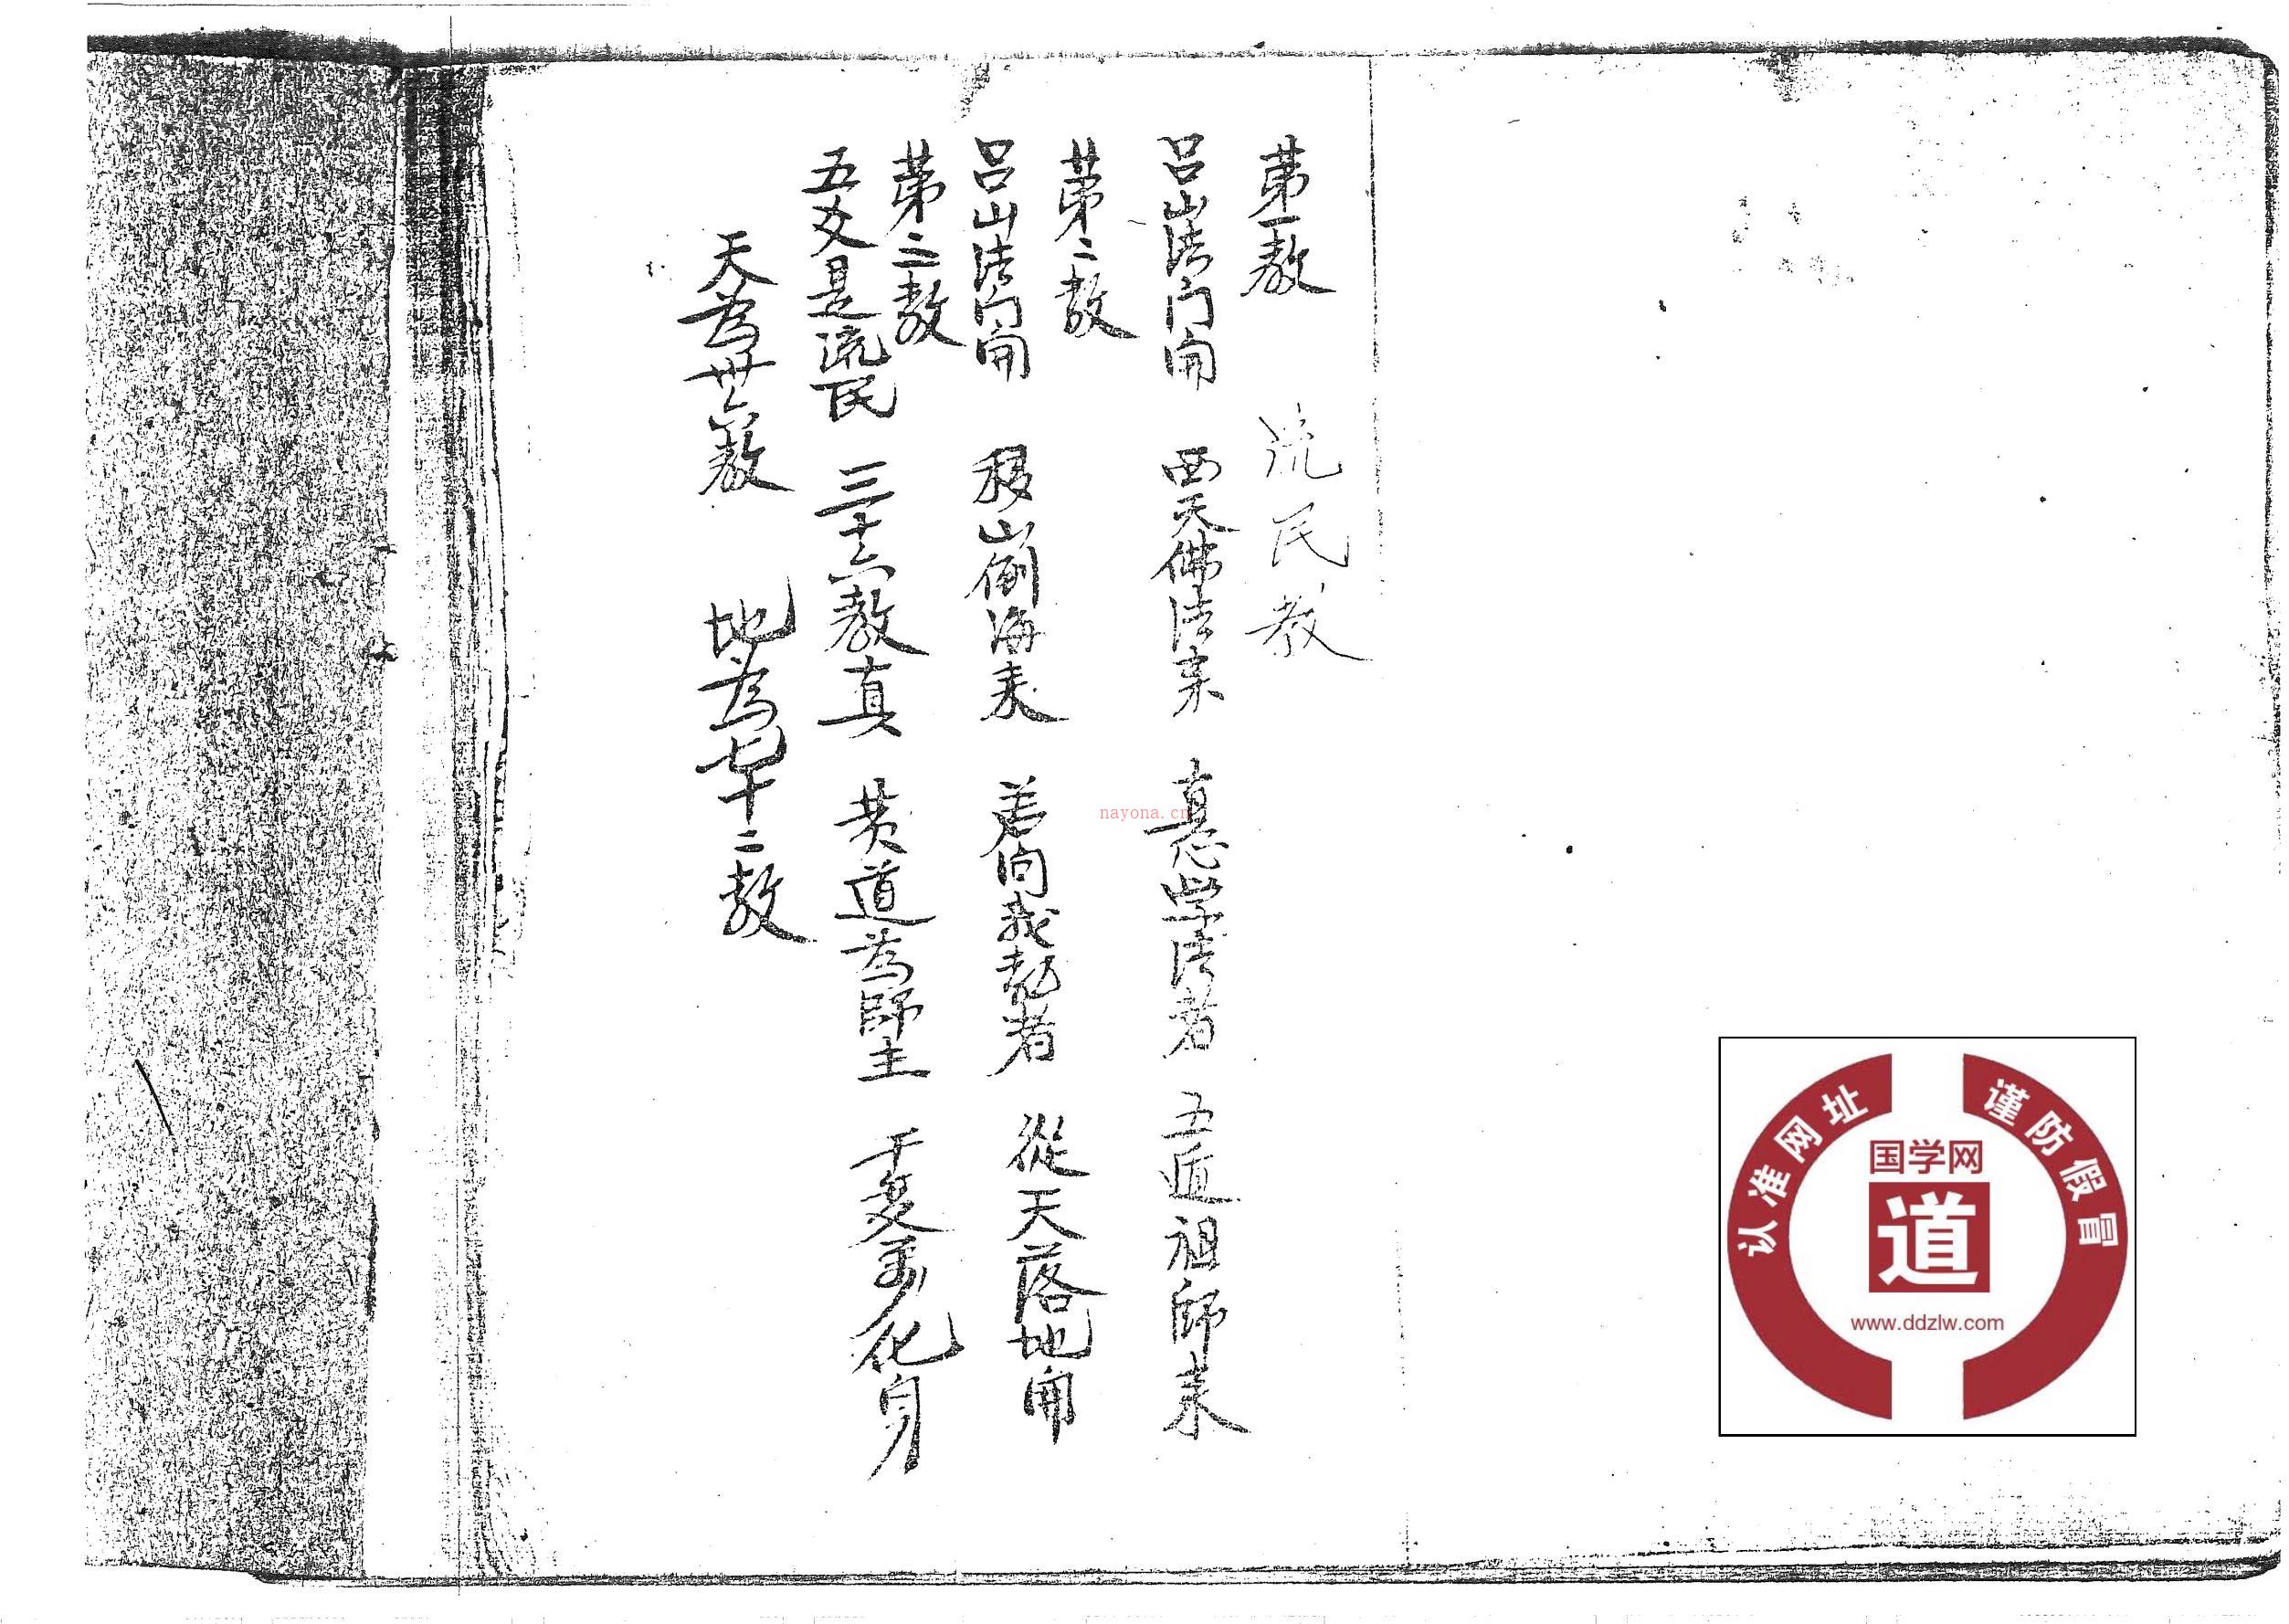 第一教 流民教
呂山法门開 西天佛法来 真心学法者 五道祖師来
第二教
呂山法门開 移山倒海来 若向我教者 從天落地開
第三教
五父是流民 三十六教真 黄道為師主 千变萬化身
天為卅六教 地為七十二教
nayona.cn
认准网址 谨防假冒
国学网
道
www.ddzlw.com